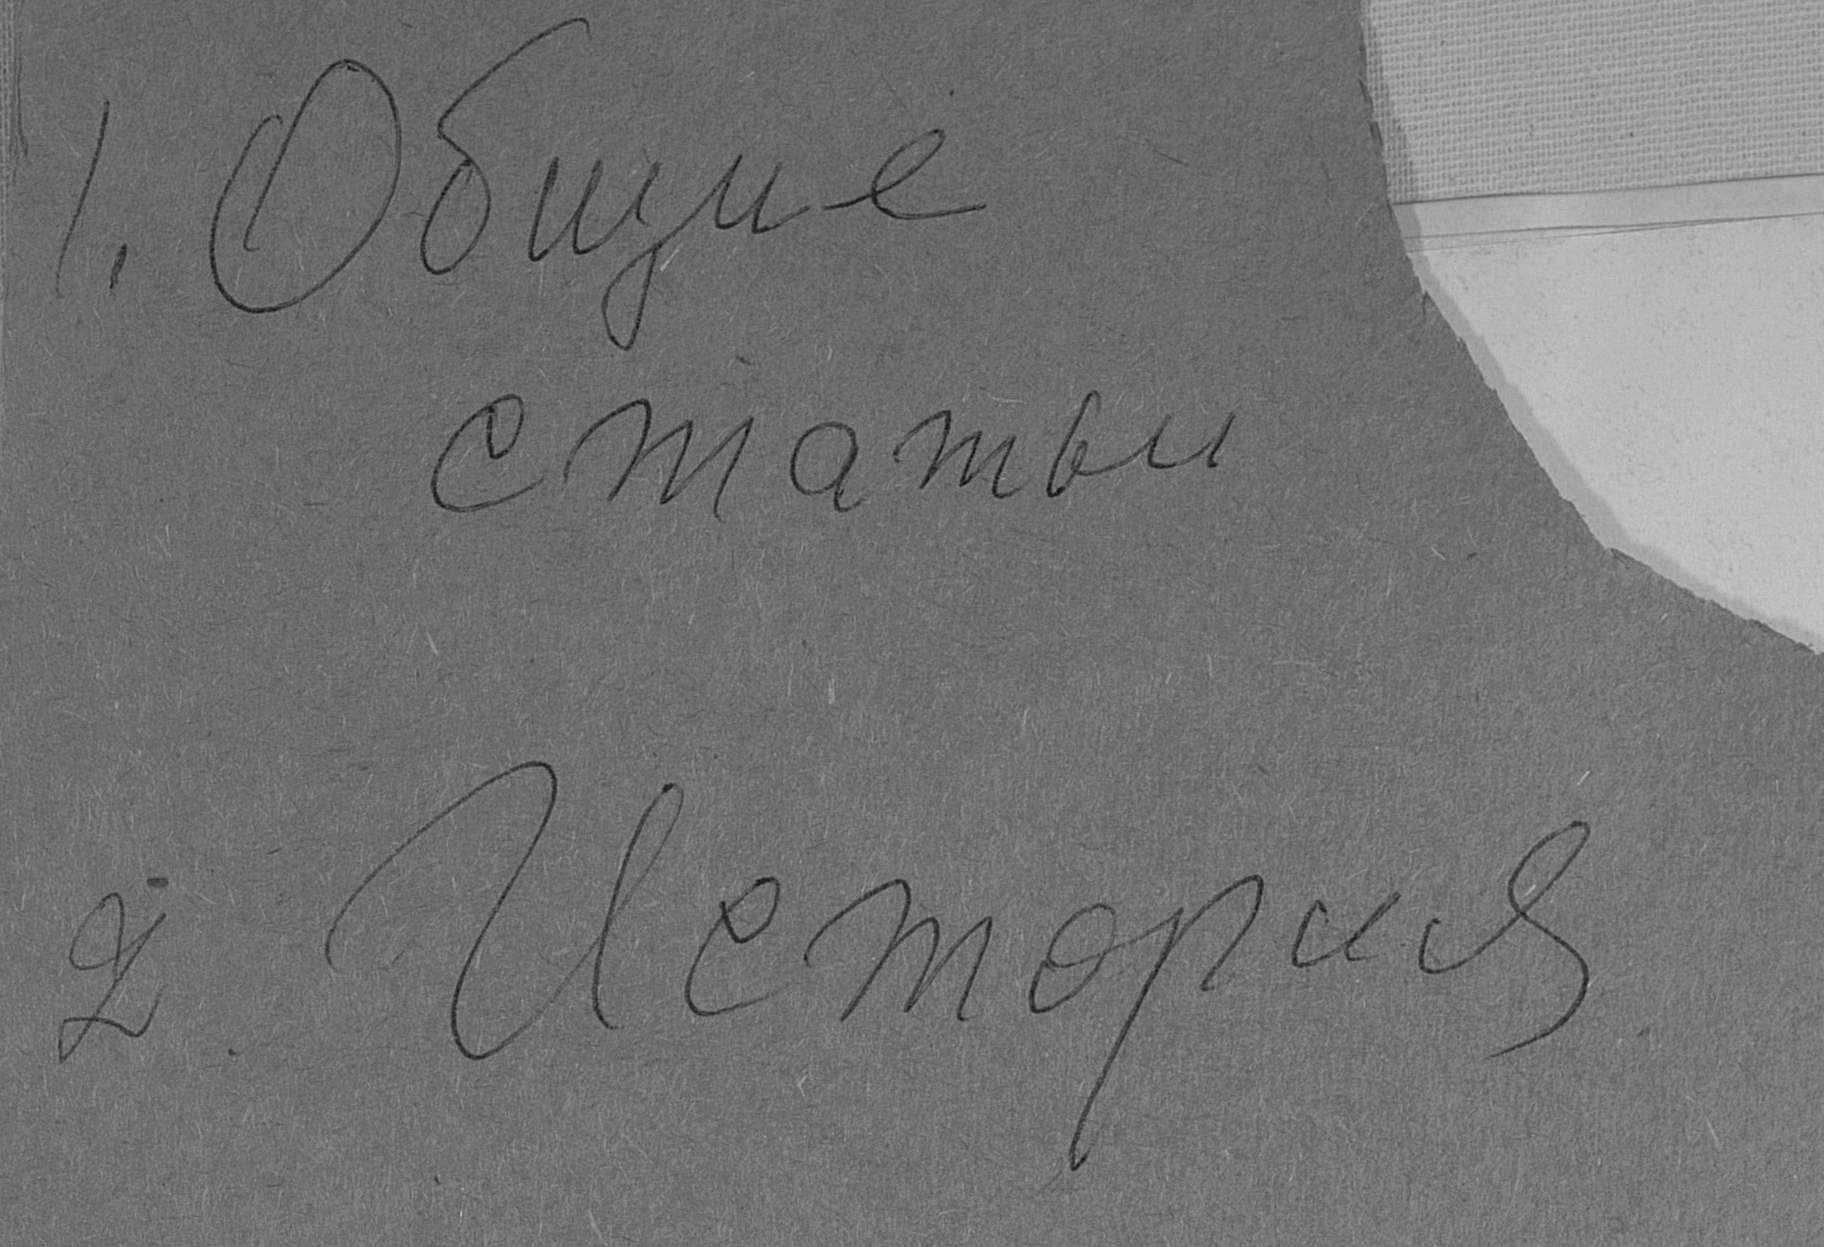 1. Общие
статьи
2. История